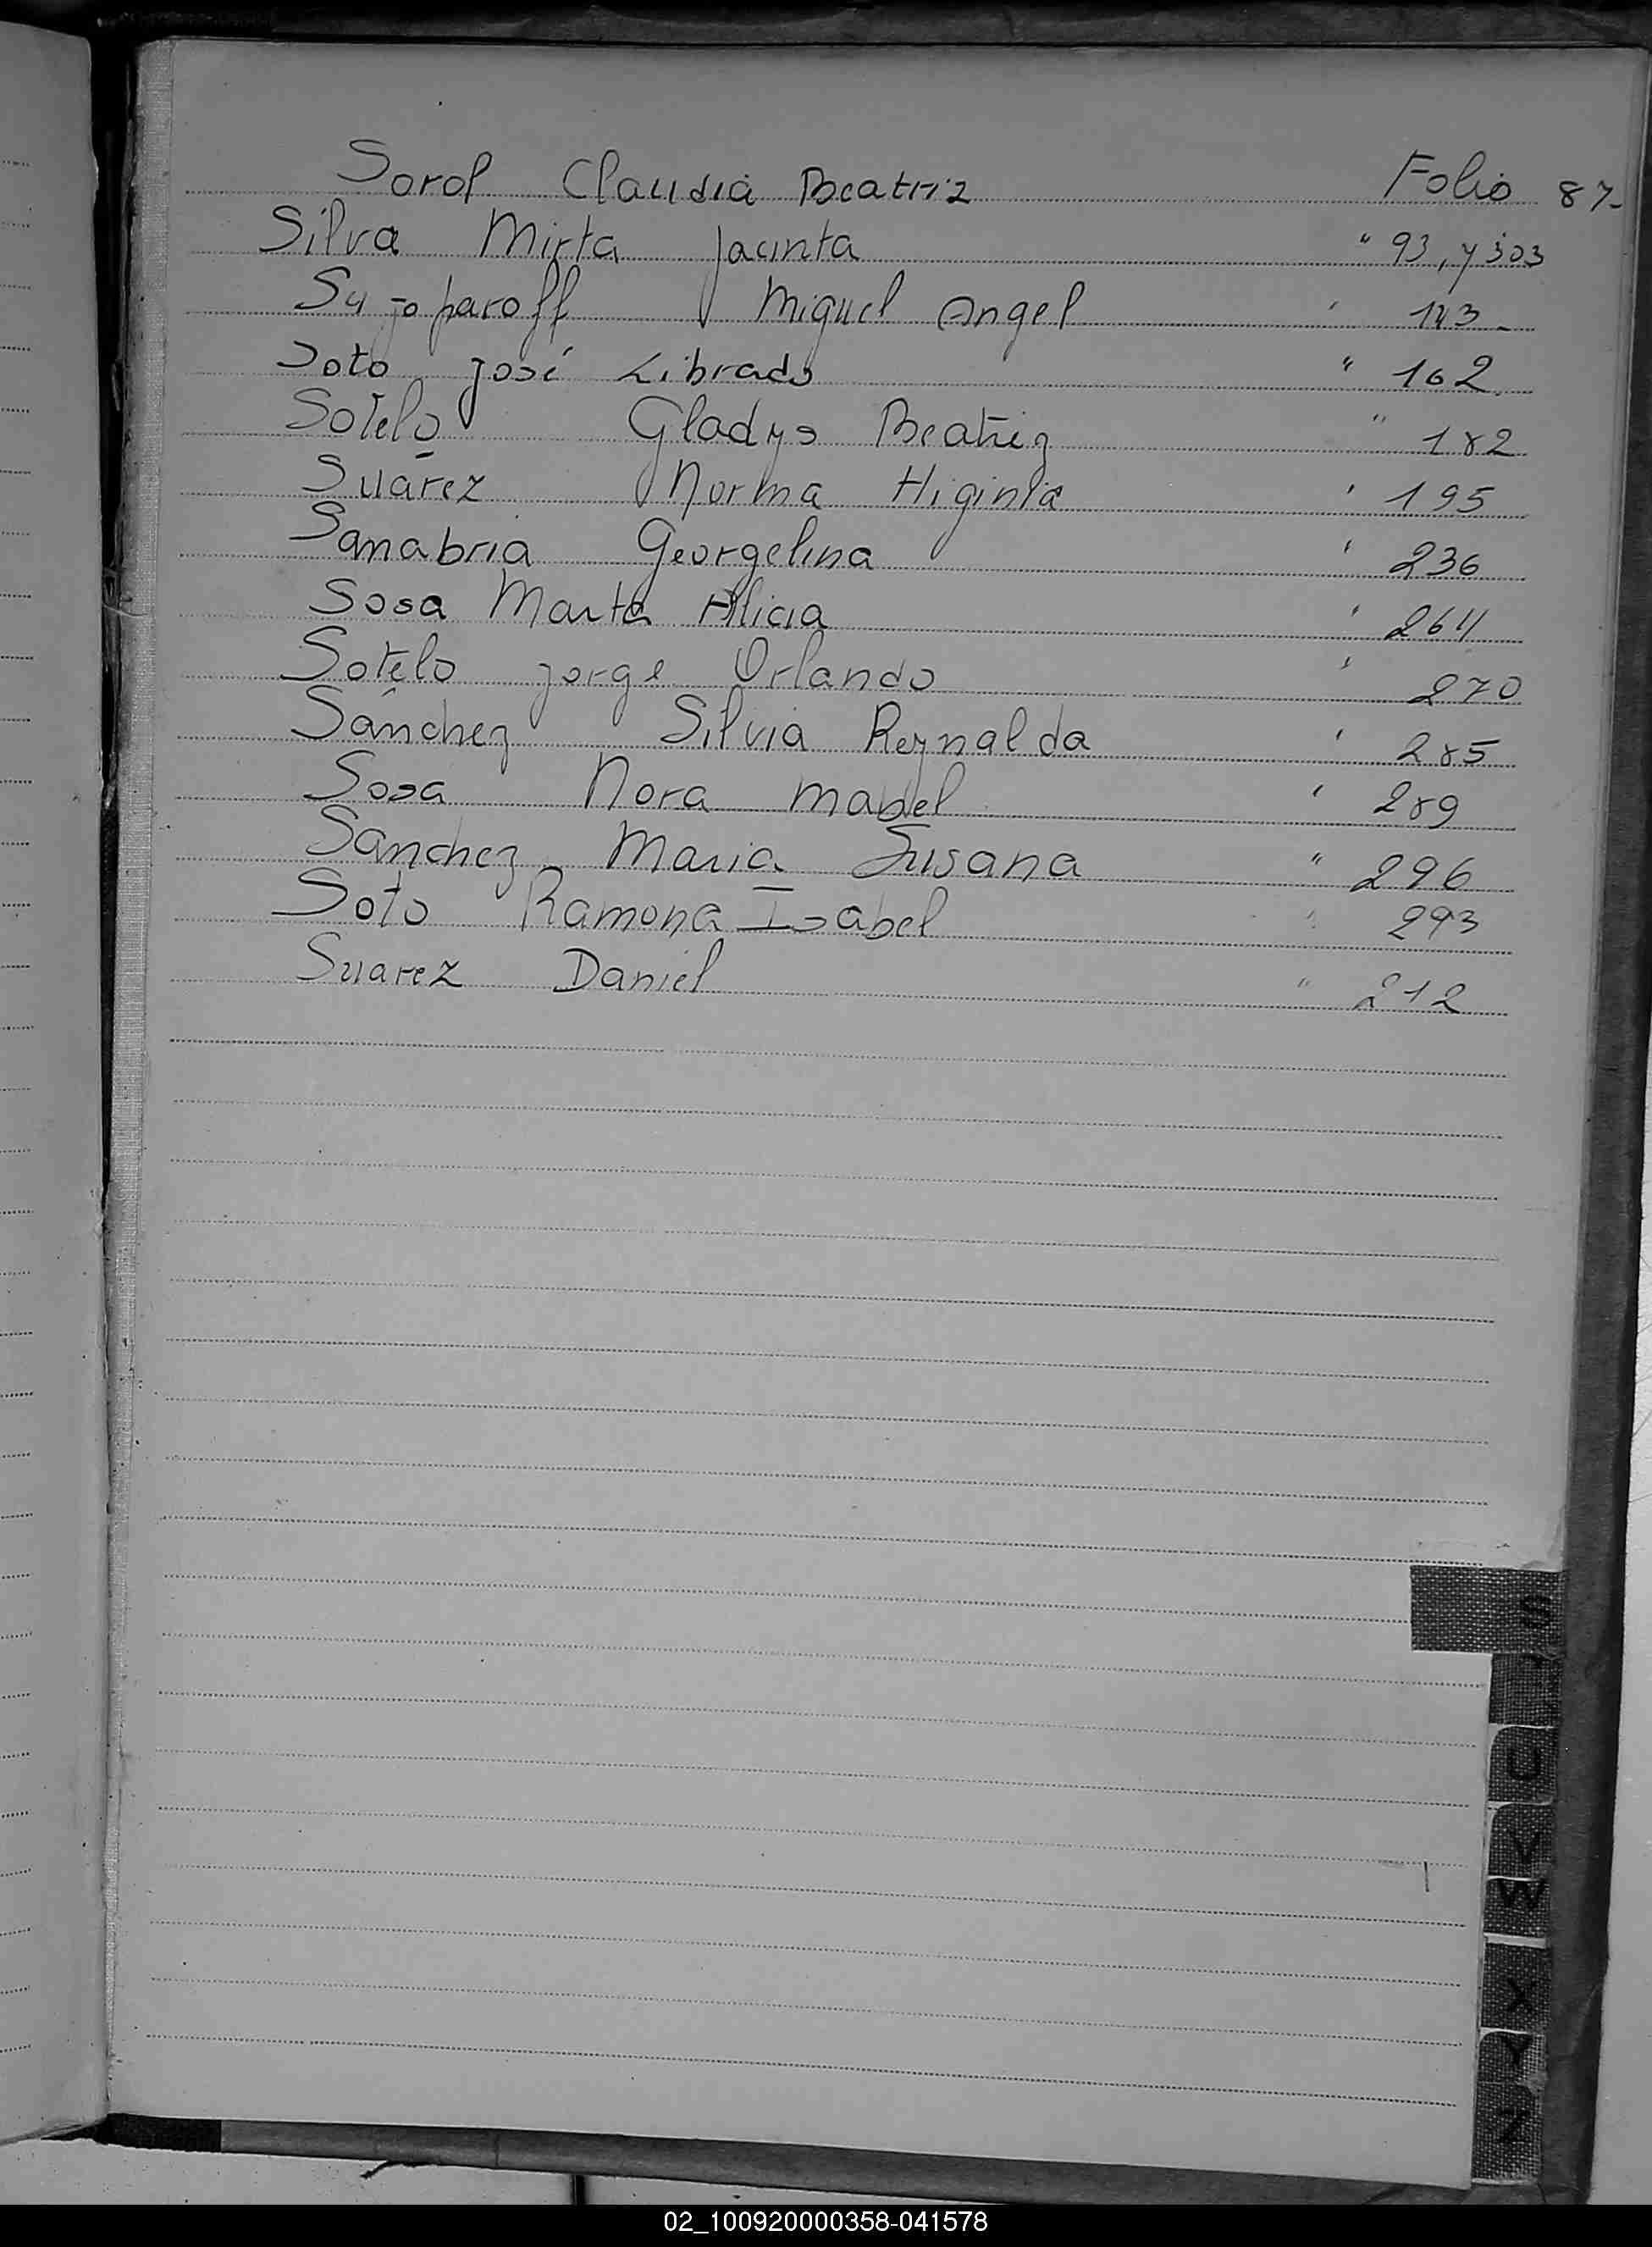 Sorol Claudia Beatriz Folio 87-
Silva Mirta Jacinta " 93, y 303
Miguel Angel " 123-
Soto José Librado " 162
Sotelo Gladys Beatriz " 182
Suárez Norma Higinia " 195
Sanabria Georgelina " 236
Sosa Marta Alicia " 264
Sotelo Jorge Orlando " 270
Sánchez Silvia Reynalda " 285
Sosa Nora Mabel " 289
Sánchez Maria Susana " 296
Soto Ramona Isabel " 293
Suarez Daniel " 212
S
U
V
W
X
Y
Z
02_100920000358-041578